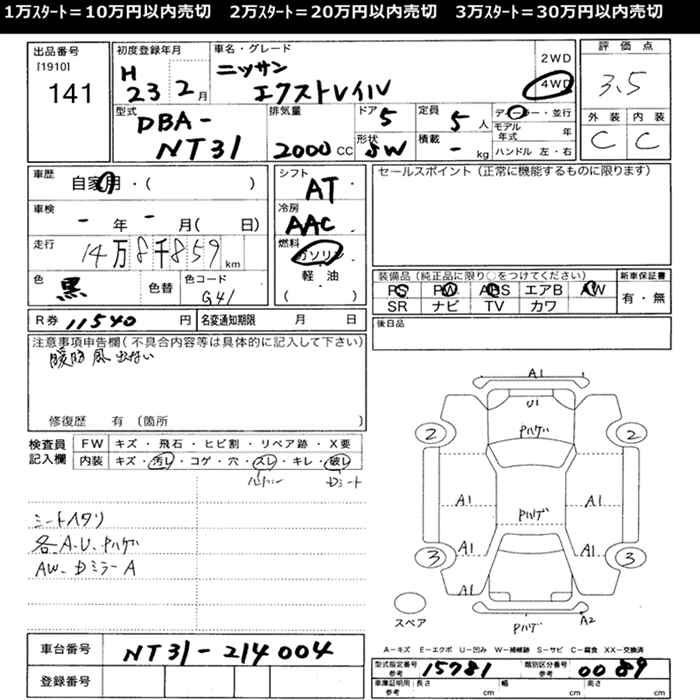 1万スタート=10万円以内売切 2万スタート=20万円以内売切 3万スタート=30万円以内売切
出品番号
[1910]
141
初度登録年月
H 23 2月
車名・グレード
ニッサン
エクストレイル
2WD
4WD
評価点
3.5
外装 内装
C C
型式
DBA-
NT31
排気量
2000 CC
ドア 5
形状 SW
定員 5 人
積載 - kg
ディーラー・並行
モデル年式 年
ハンドル 左・右
車歴
自家用・( )
車検
- 年 - 月( 日)
走行
14万8千859 km
色
黒
色替
色コード
G41
シフト
AT
冷房
AAC
燃料
ガソリン
軽油
( )
セールスポイント(正常に機能するものに限ります)
装備品(純正品に限り○をつけてください)
PS PW ABS エアB AW
SR ナビ TV カワ
新車保証書
有・無
後日品
R券 11540 円
名変通知期限 月 日
注意事項申告欄(不具合内容等は具体的に記入して下さい)
暖房 風 出ない
修復歴 有(箇所 )
検査員記入欄
FW キズ・飛石・ヒビ割・リペア跡・X要
内装 キズ・汚レ・コゲ・穴・スレ・キレ・破レ
Dシート
シートヘタリ
各A.U.Pハゲ
AW. DミラーA
A1
U1
Pハゲ
2 2
A1 A1
Pハゲ
A1 A1
3 3
A1
Pハゲ A2
スペア
A-キズ E-エクボ U-凹み W-補修跡 S-サビ C-腐食 XX-交換済
車台番号 NT31-214004
登録番号
型式指定番号 参考 15781
類別区分番号 参考 0089
車庫証明用 参考 長さ cm 幅 cm 高さ cm